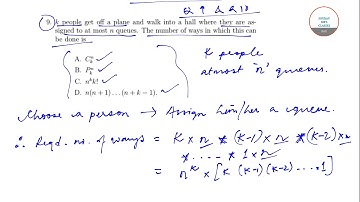 Q 9 & Q 10
9. k people get off a plane and walk into a hall where they are as-
signed to at most n queues. The number of ways in which this can
be done is
A. C^n_k
B. P^n_k
C. n^k k!
D. n(n + 1) . . . (n + k − 1)
K people
atmost 'n' queues.
Choose a person → Assign him/her a queue.
∴ Reqd. no. of ways = K × n × (K-1) × n × (K-2) × n
× . . . . × 1 × n
= n^K × [K (K-1) (K-2) . . . . 1]